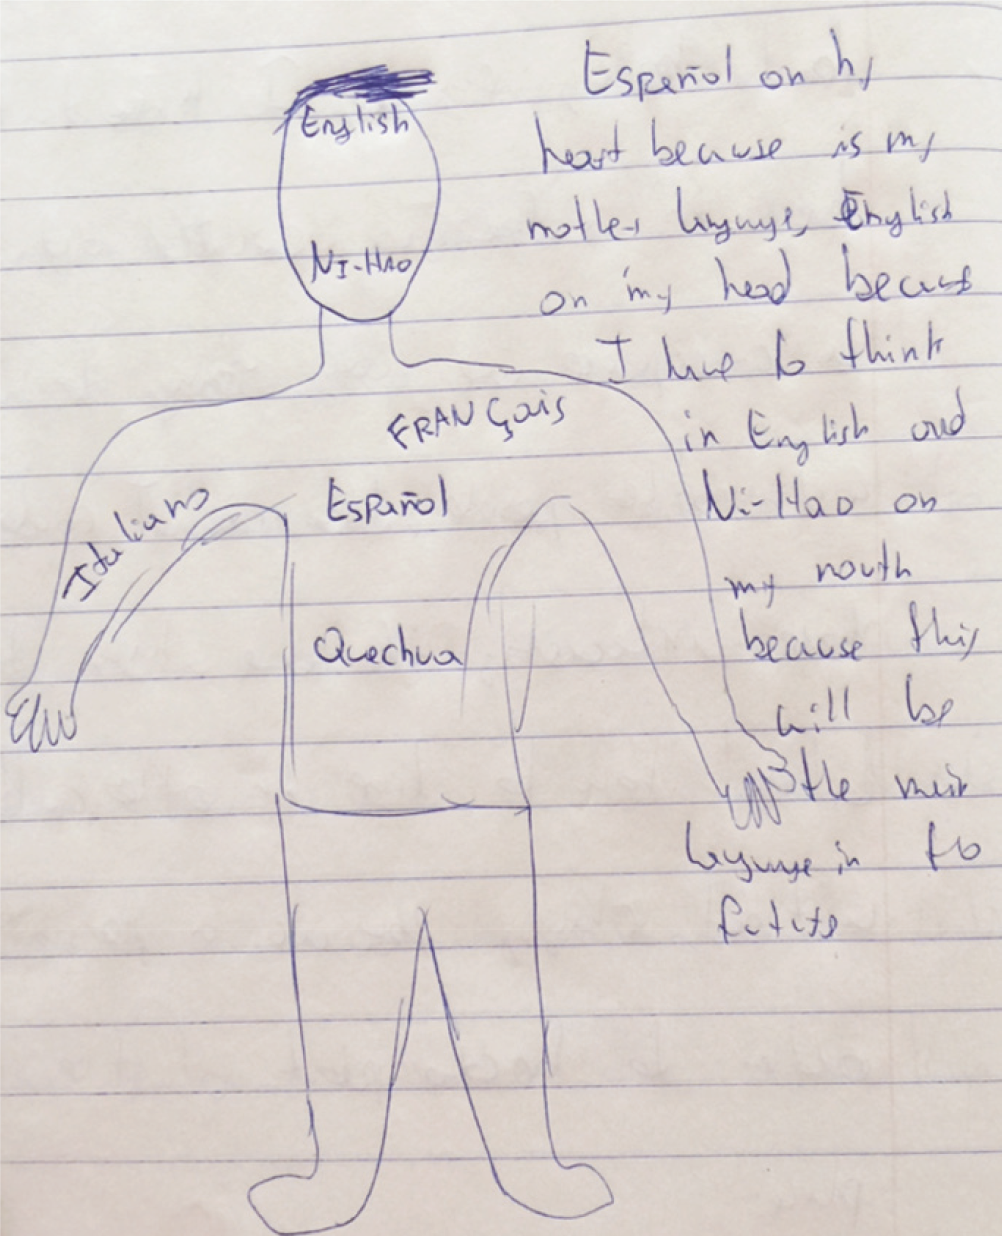 English
NI-HAO
FRANÇais
Italiano
Español
Quechua
Español on my
heart because is my
mother language, English
on my head because
I have to think
in English and
Ni-Hao on
my mouth
because this
will be
the main
language in to
future